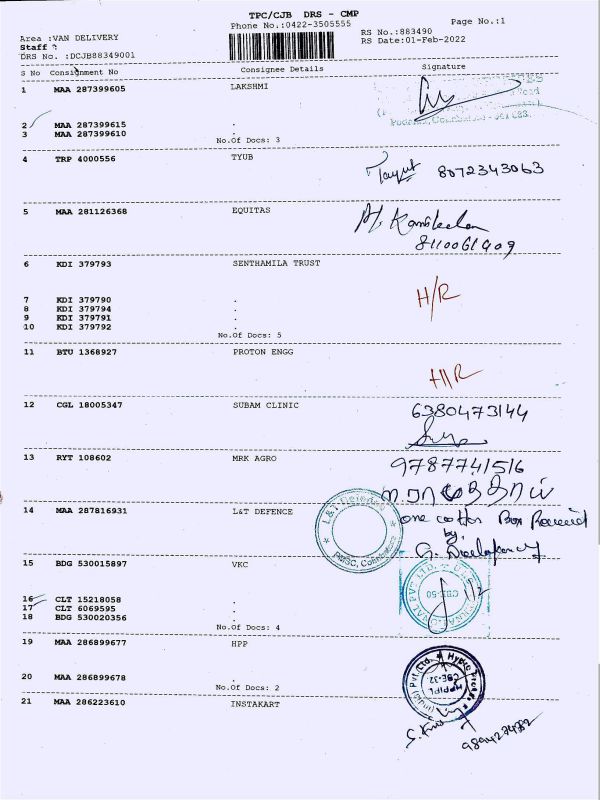 TPC/CJB DRS - CMP
Phone No.:0422-3505555
Page No.:1
Area :VAN DELIVERY
RS No.:883490
Staff :
RS Date:01-Feb-2022
DRS No. :DCJB88349001
S No Consignment No Consignee Details Signature
1 MAA 287399605 LAKSHMI
2 MAA 287399615 .
3 MAA 287399610 .
No.Of Docs: 3
4 TRP 4000556 TYUB
8072343063
5 MAA 281126368 EQUITAS
8110061909
6 KDI 379793 SENTHAMILA TRUST
H/R
7 KDI 379790 .
8 KDI 379794 .
9 KDI 379791 .
10 KDI 379792 .
No.Of Docs: 5
11 BTU 1368927 PROTON ENGG
H/R
12 CGL 18005347 SUBAM CLINIC 6380473144
13 RYT 108602 MRK AGRO 9787741516
14 MAA 287816931 L&T DEFENCE
one cotton Box Received
by
L&T Defence
PMSC, Coimbatore
15 BDG 530015897 VKC
CBE-50
16 CLT 15218058 .
17 CLT 6069595 .
18 BDG 530020356 .
No.Of Docs: 4
19 MAA 286899677 HPP
HPPIPL
CBE-32
20 MAA 286899678 .
No.Of Docs: 2
21 MAA 286223610 INSTAKART